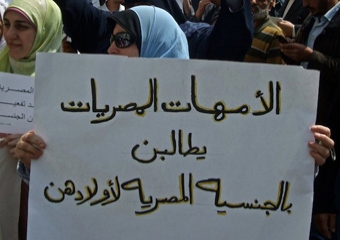 الأمهات المصريات
يطالبن
بالجنسيه المصريه لأولادهن